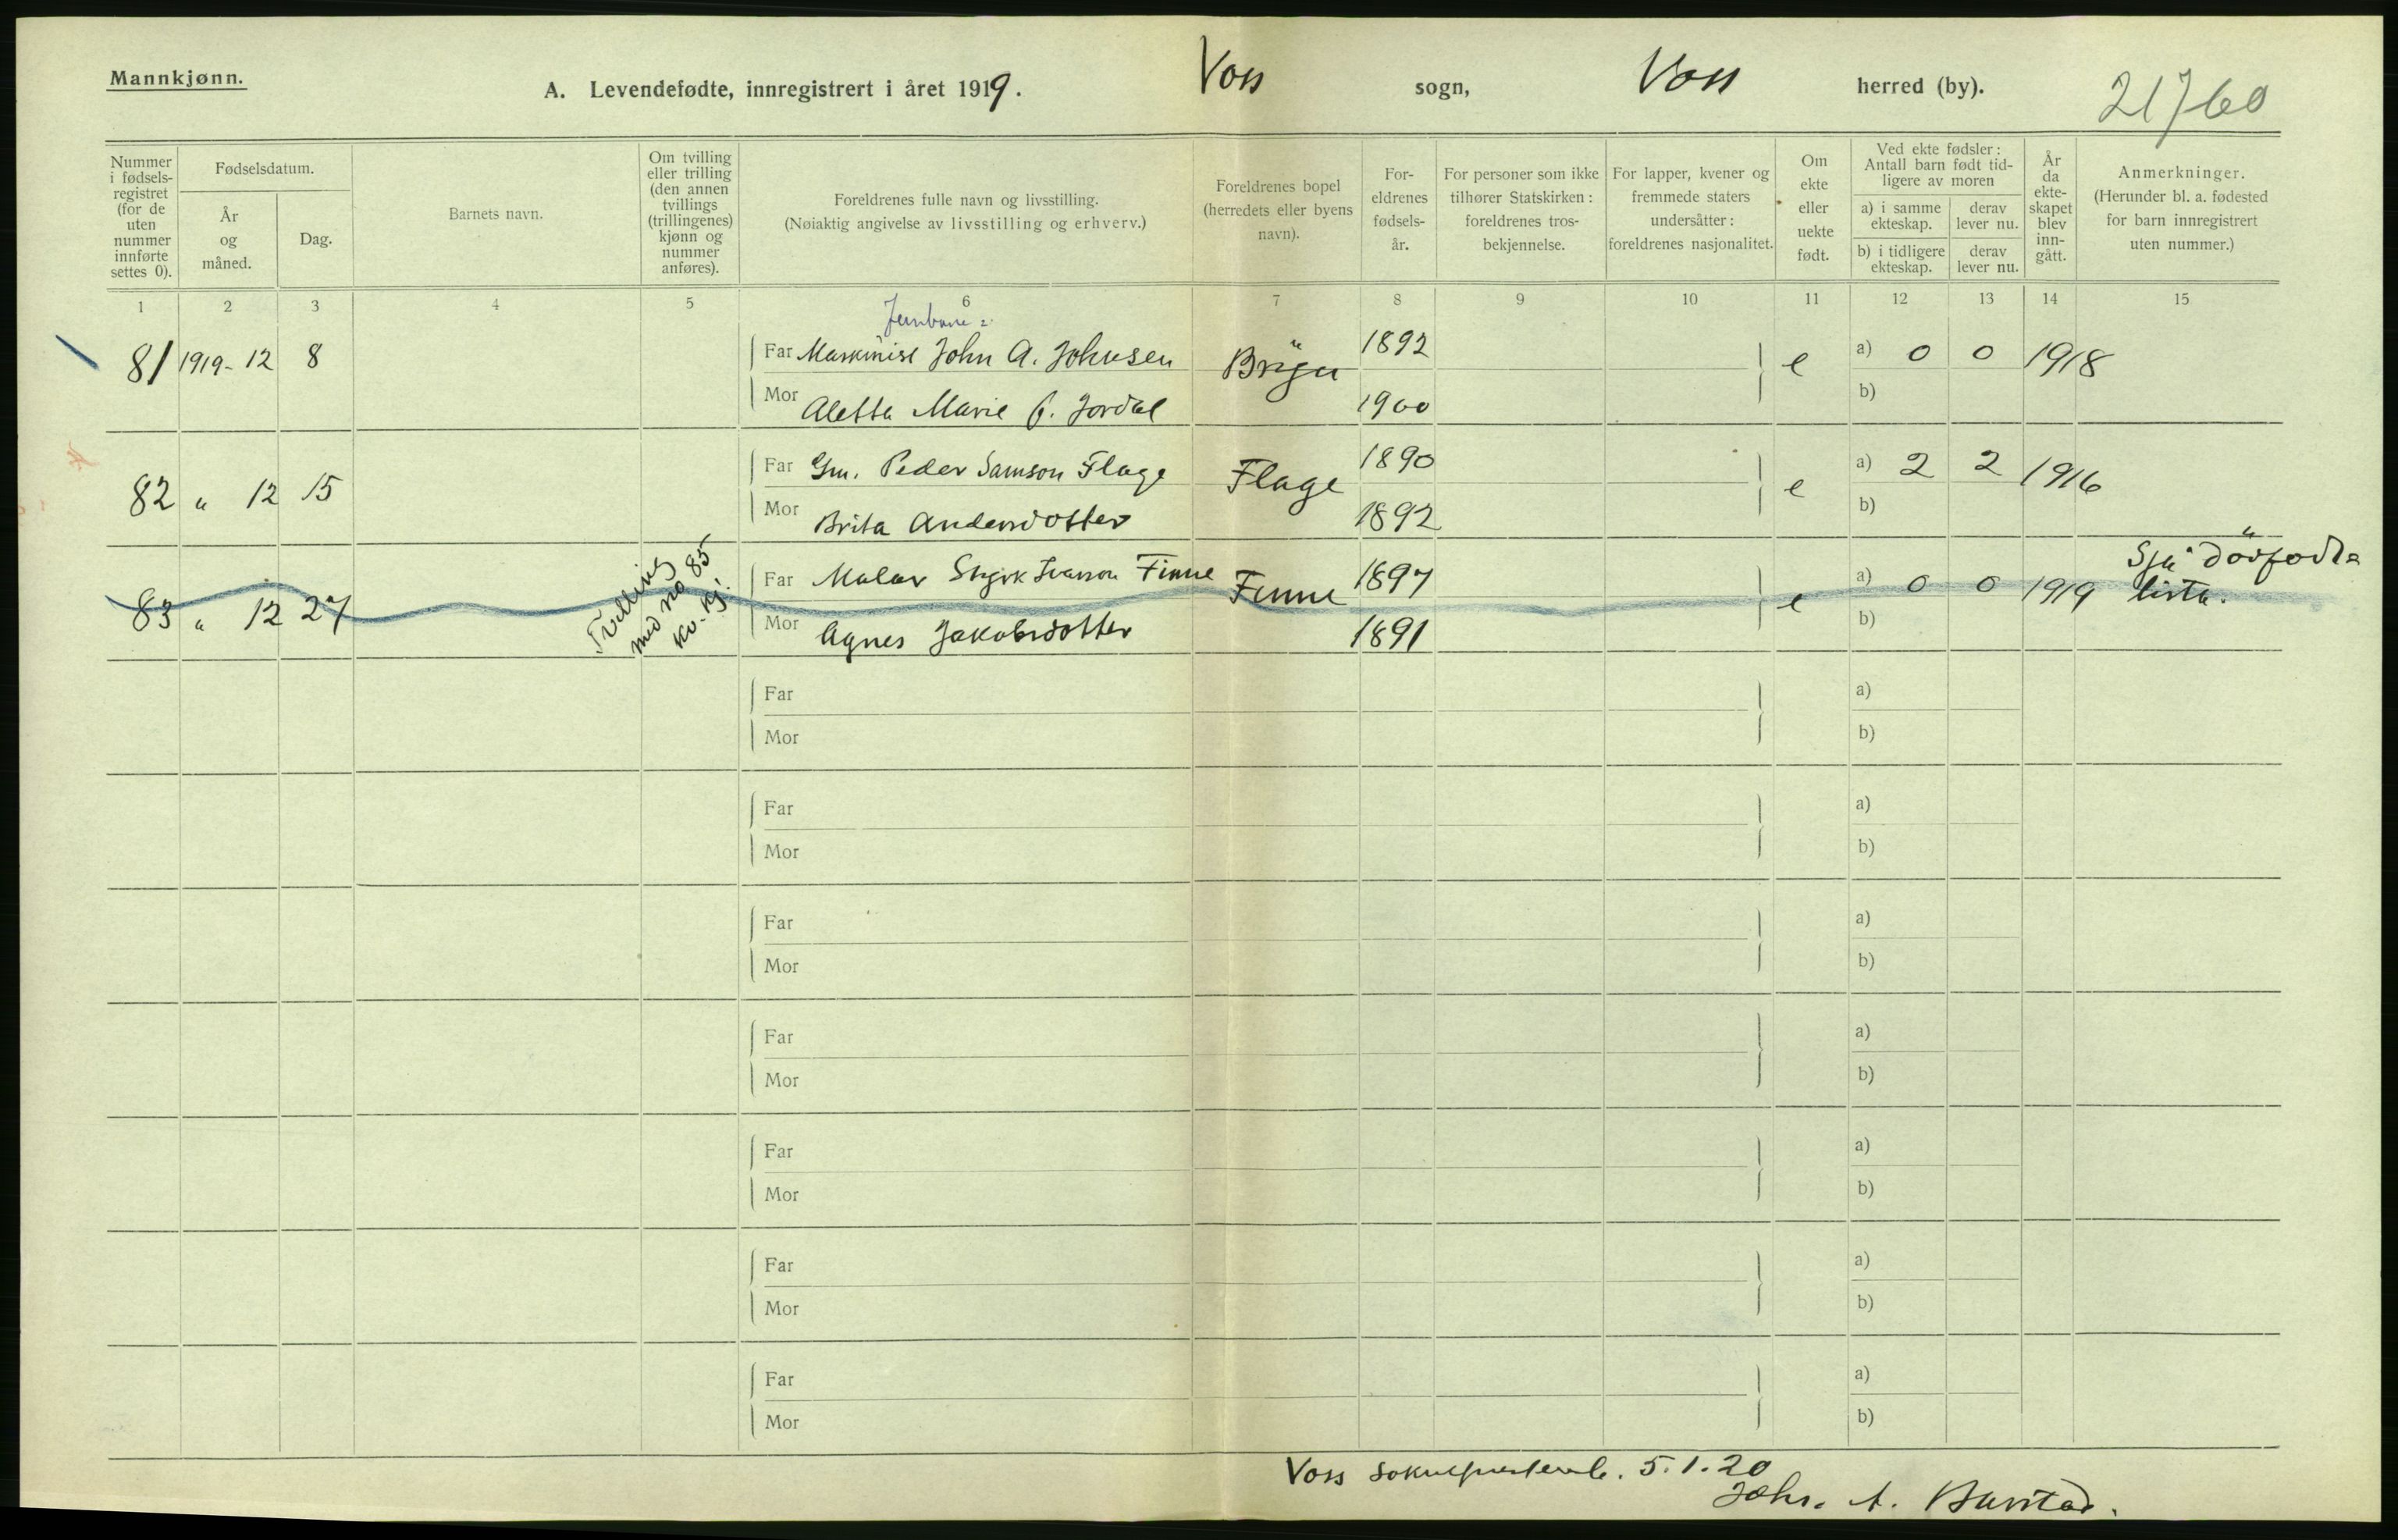 Mannkjønn.
A. Levendefødte, innregistrert i året 1919. Voss sogn, Voss herred (by). 21760
Nummer i fødselsregistret (for de uten nummer innførte settes 0).
Fødselsdatum.
År og måned.
Dag.
Barnets navn.
Om tvilling eller trilling (den annen tvillings (trillingenes) kjønn og nummer anføres).
Foreldrenes fulle navn og livsstilling.
(Nøiaktig angivelse av livsstilling og erhverv.)
Foreldrenes bopel (herredets eller byens navn).
Foreldrenes fødselsår.
For personer som ikke tilhører Statskirken: foreldrenes trosbekjennelse.
For lapper, kvener og fremmede staters undersåtter: foreldrenes nasjonalitet.
Om ekte eller uekte født.
Ved ekte fødsler: Antall barn født tidligere av moren
a) i samme ekteskap.
derav lever nu.
b) i tidligere ekteskap.
derav lever nu.
År da ekteskapet blev inngått.
Anmerkninger.
(Herunder bl. a. fødested for barn innregistrert uten nummer.)
1 2 3 4 5 6 7 8 9 10 11 12 13 14 15
Jernbane=
81 1919- 12 8 Far Maskinist John A. Johnsen 1892 e a) 0 0 1918
Mor Aletta Marie Jordal 1900 b)
82 " 12 15 Far Gm. Peder Samson Flage Flage 1890 e a) 2 2 1916
Mor Brita Andersdotter 1892 b)
83 " 12 27 Tvilling med no 85 kv. kj. Far Malar Ivarson Finne Finne 1897 e a) 0 0 1919 Sjå dödfödte lista.
Mor Agnes Jakobsdotter 1891 b)
Far a)
Mor b)
Far a)
Mor b)
Far a)
Mor b)
Far a)
Mor b)
Far a)
Mor b)
Far a)
Mor b)
Far a)
Mor b)
Voss 5.1.20
Johs. A.